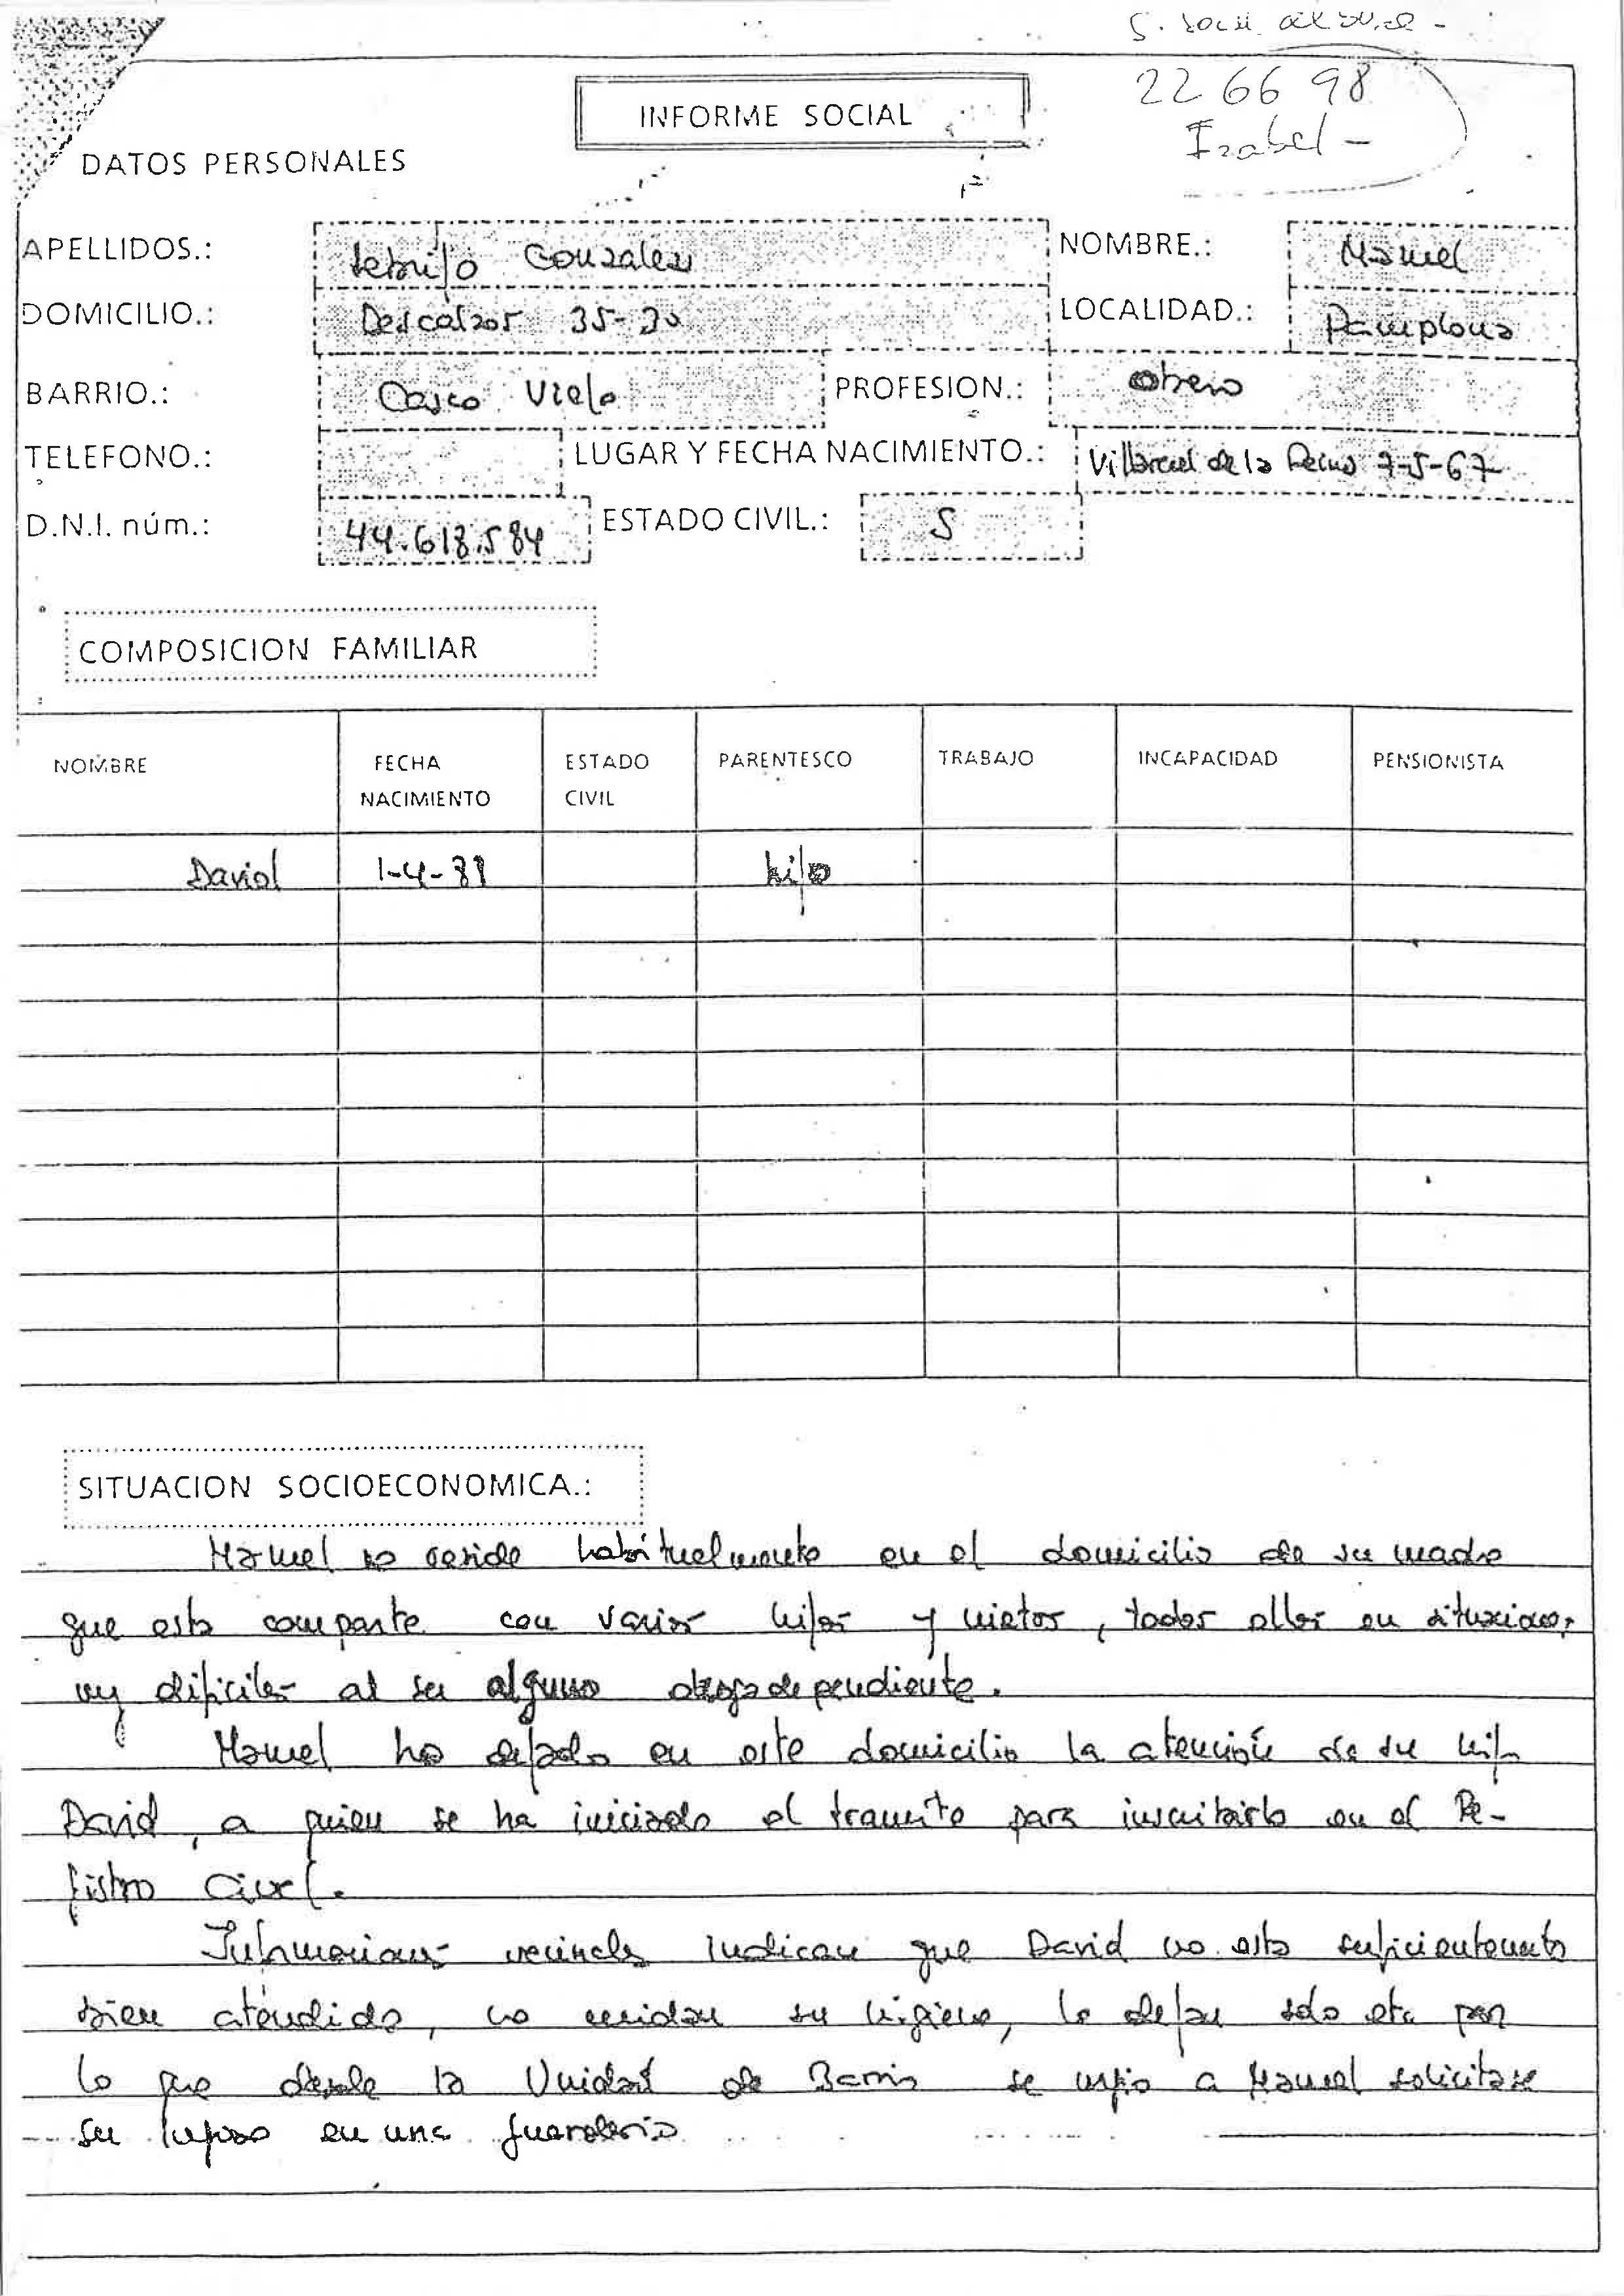 22 66 98
Isabel -
INFORME SOCIAL
DATOS PERSONALES
APELLIDOS.: Gonzalez NOMBRE.: Manuel
DOMICILIO.: Descalzos 35-30 LOCALIDAD.: Pamplona
BARRIO.: Casco Viejo PROFESION.: obrero
TELEFONO.: LUGAR Y FECHA NACIMIENTO.: Villareal de la Reina 7-5-67
D.N.I. núm.: 44.618.584 ESTADO CIVIL.: S
COMPOSICION FAMILIAR
NOMBRE FECHA NACIMIENTO ESTADO CIVIL PARENTESCO TRABAJO INCAPACIDAD PENSIONISTA
David 1-4-88 hijo
SITUACION SOCIOECONOMICA.:
Manuel no reside habitualmente en el domicilio de su madre
que esta comparte con varios hijos y nietos, todos ellos en situaciones
muy dificiles al ser alguno drogadependiente.
Manuel ha dejado en este domicilio la atención de su hijo
David, a quien se ha iniciado el tramite para inscribirlo en el Re-
gistro Civil.
Informaciones vecinales indican que David no esta suficientemente
bien atendido, no cuidan su higiene, lo dejan solo etc por
lo que desde la Unidad de Barrio se urgio a Manuel solicitase
su ingreso en una guarderia